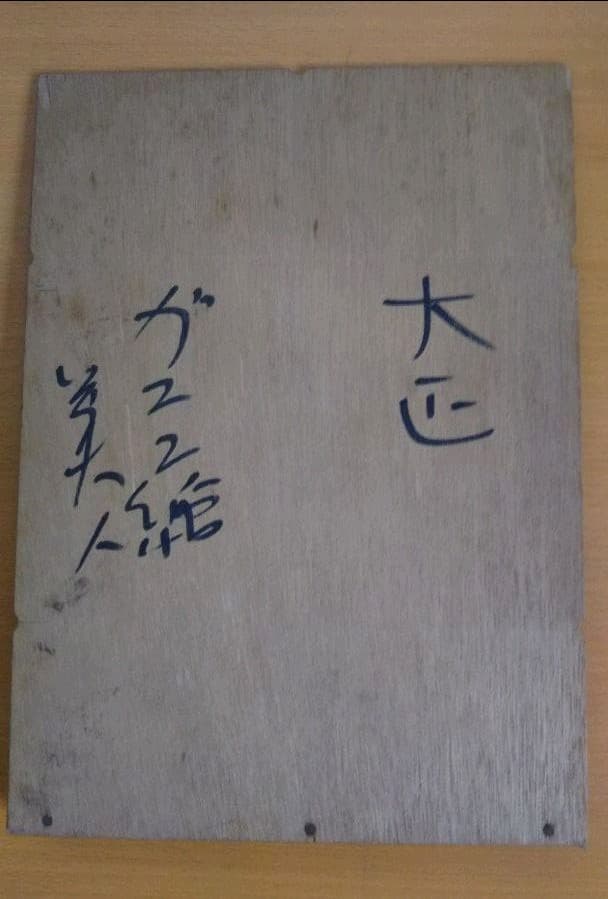 大正
ガラス繪
美人